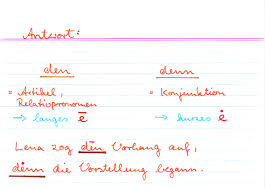 Antwort:
den denn
= Artikel, = Konjunktion
Relativpronomen
→ langes ē → kurzes ė
Lena zog den Vorhang auf,
denn die Vorstellung begann.